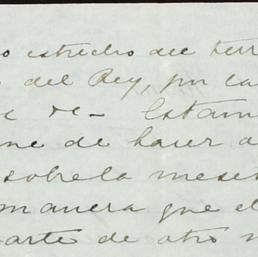 o estrecho del terr
del Rey, por la
Estam
ne de hacer a
sobre la mese
manera que el
arte de otro m